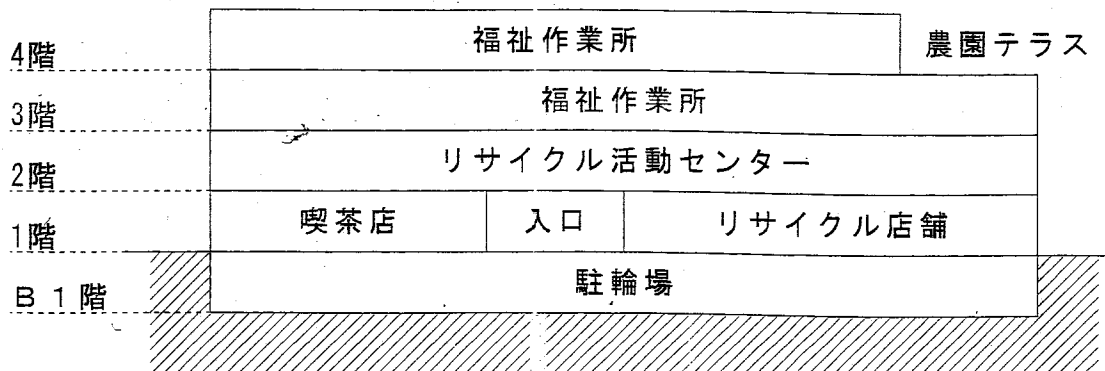 4階 福祉作業所 農園テラス
3階 福祉作業所
2階 リサイクル活動センター
1階 喫茶店 入口 リサイクル店舗
B1階 駐輪場